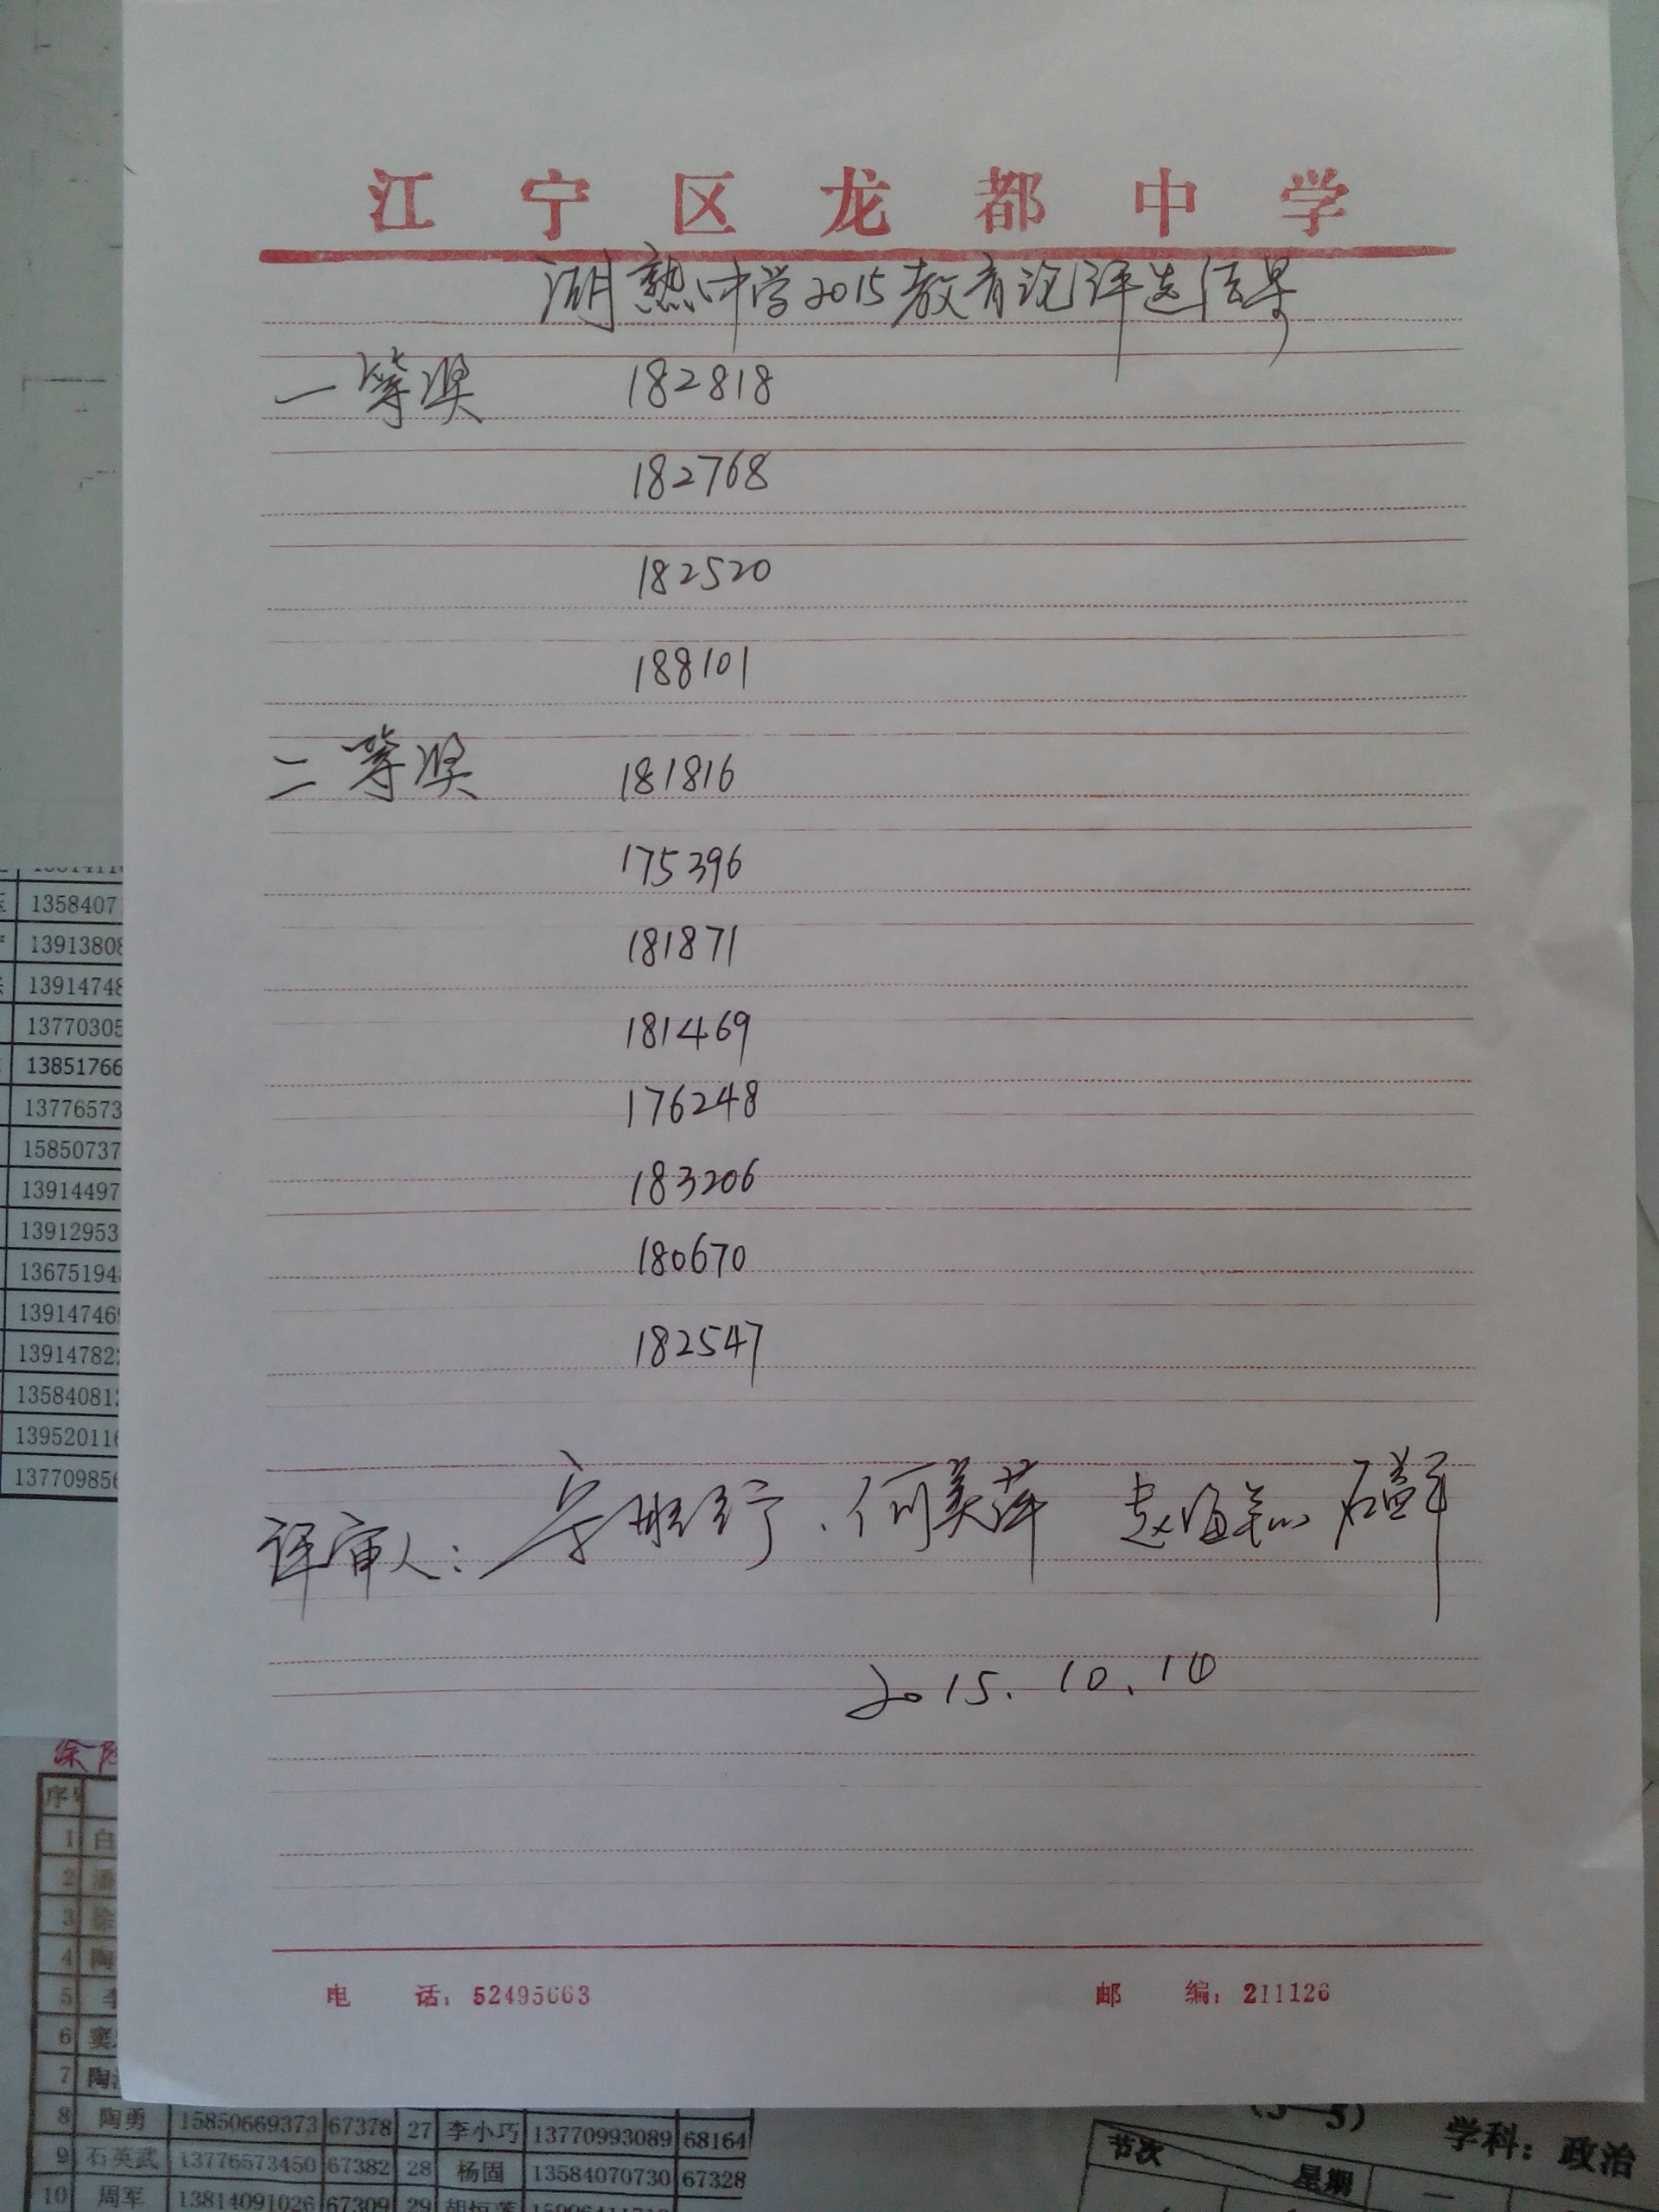 江宁区龙都中学
湖熟中学2015教育论评选结果
一等奖 182818
182768
182520
188101
二等奖 181816
175396
181871
181469
176248
183206
180670
182547
评审人: 何美萍
2015.10.10
电话: 52495663
邮编: 211126
1358407
1391380
13914748
13770305
13851766
13776573
15850737
13914497
13912953
1367519
1391474
1391478
1358408
1395201
1377098
序号
1 白
2 潘
3 徐
4 陶
5 李
6 窦
7 陶
8 陶勇 15850669373 67378 27 李小巧 13770993089 68164
9 石英武 13776573450 67382 28 杨固 13584070730 67328
10 周军 13814091026 67309 29
学科: 政治
节次 星期 一